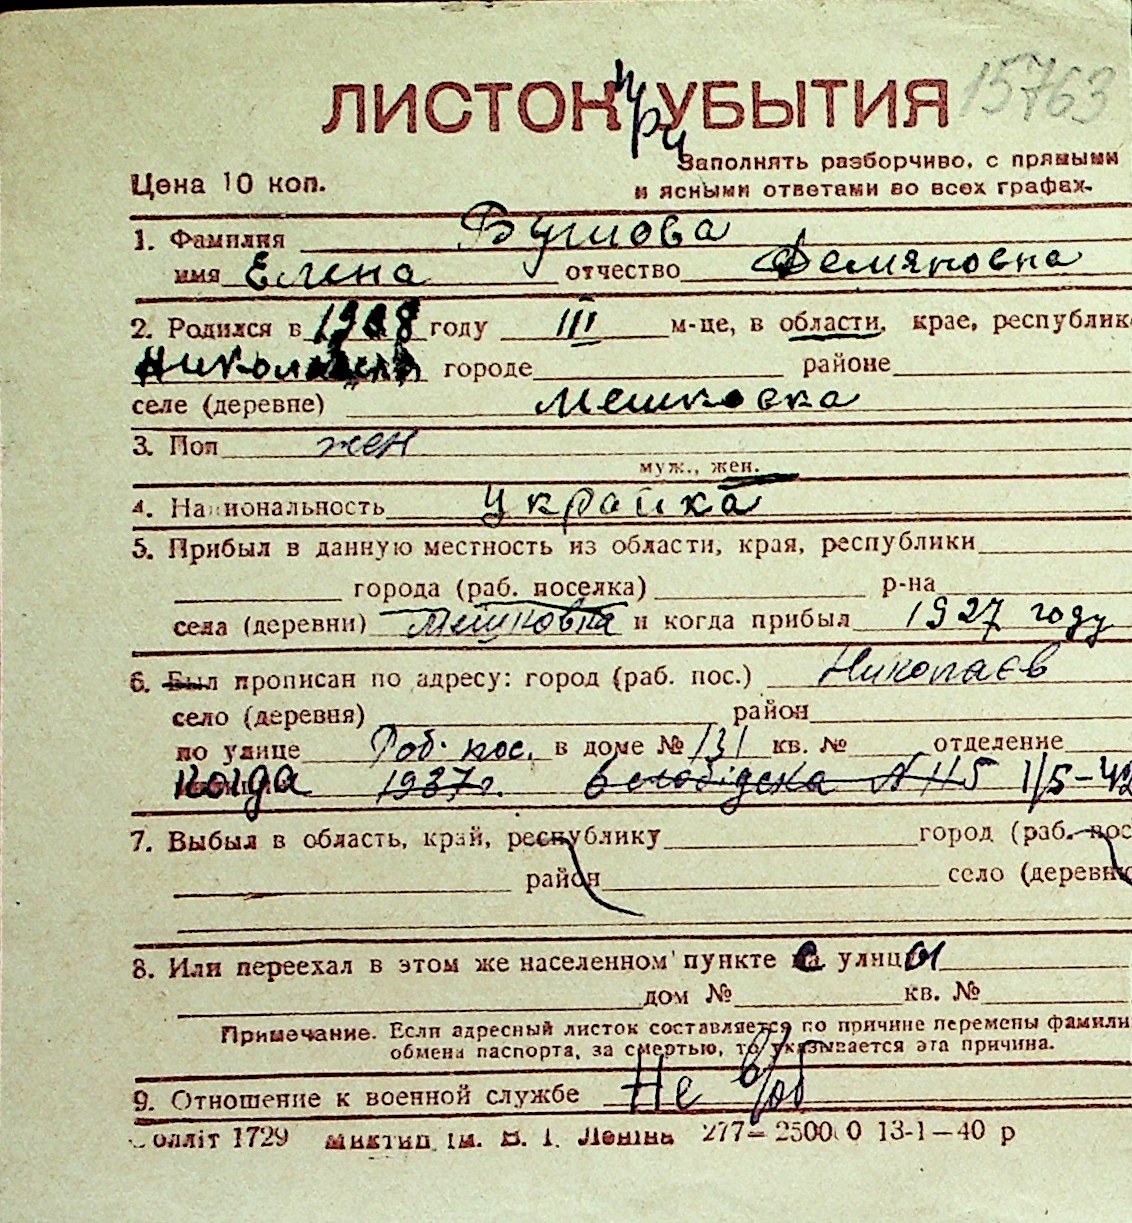 15763
ЛИСТОК при УБЫТИЯ
Заполнять разборчиво, с прямыми
Цена 10 коп. и ясными ответами во всех графах.
1. Фамилия
имя Елена отчество Демяновна
2. Родился в 1908 году III м-це, в области, крае, республике
городе районе
селе (деревне) Мешковка
3. Пол жен
муж., жен.
4. Национальность Украйка
5. Прибыл в данную местность из области, края, республики
города (раб. поселка) р-на
села (деревни) Мешковка и когда прибыл 1927 году
6. Был прописан по адресу: город (раб. пос.) Николаєв
село (деревня) район
по улице Роб. пос. в доме № 131 кв. № отделение
Когда 1937г. Слобідска N 115 1/5-42
7. Выбыл в область, край, республику город (раб. пос
район село (деревню
8. Или переехал в этом же населенном пункте с улицы
дом № кв. №
Примечание. Если адресный листок составляется по причине перемены фамили
обмена паспорта, за смертью, то указывается эта причина.
9. Отношение к военной службе Не в/об
олліт 1729 Миктип. ім. В. І. Леніна 277— 25000 13-1—40 р